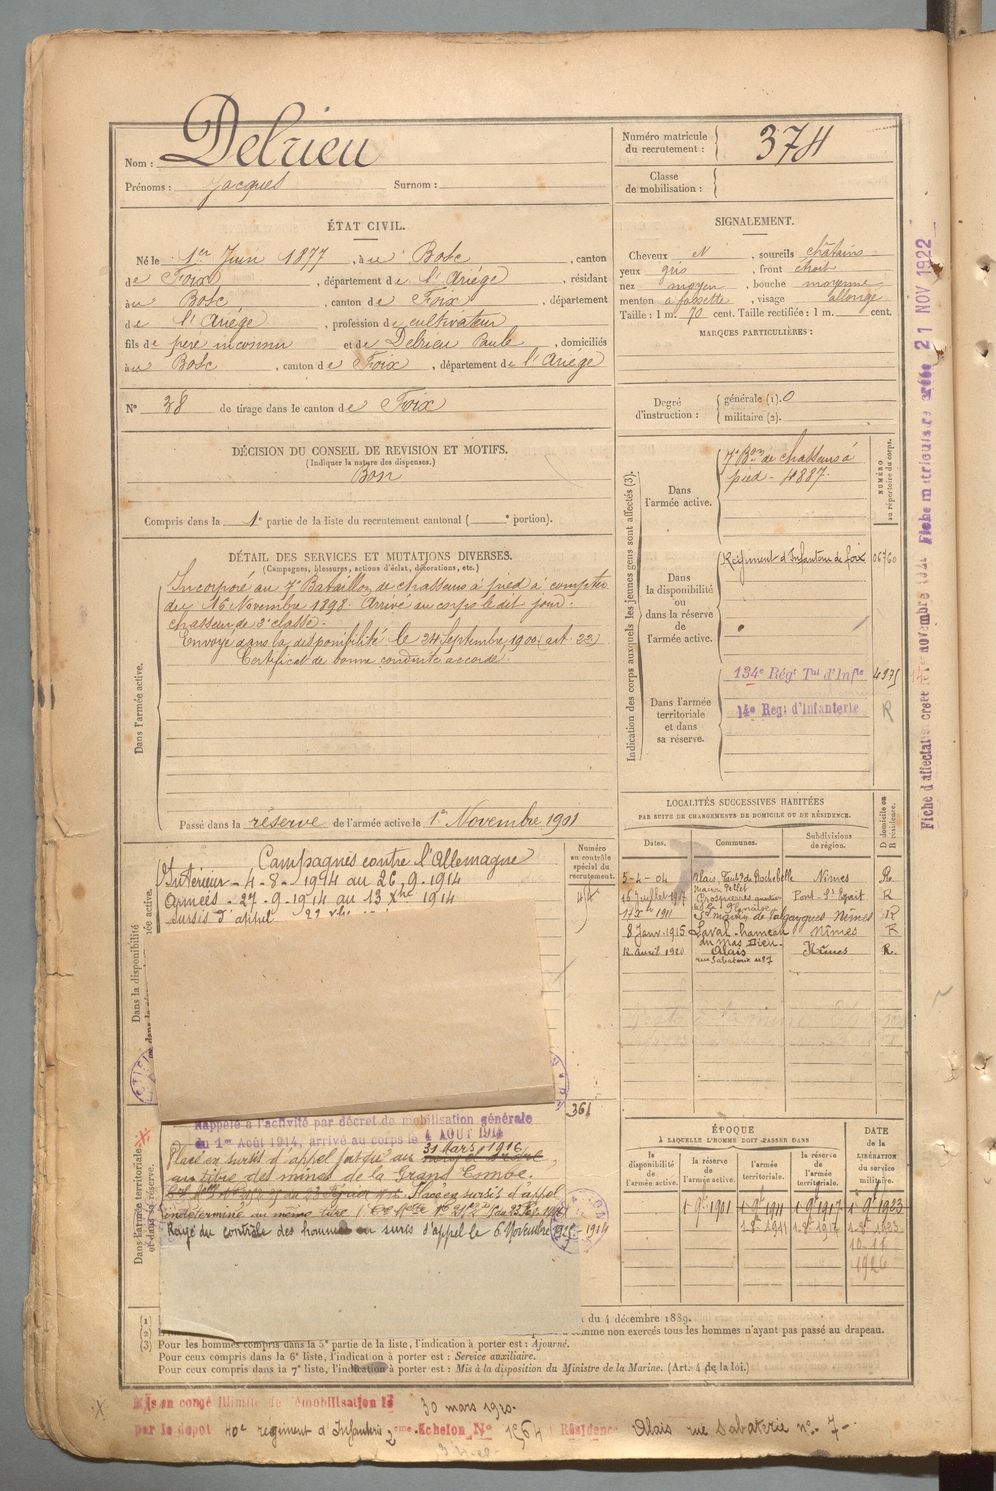 Nom : Delrieu
Prénoms : Jacques Surnom :
Numéro matricule du recrutement : 374
Classe de mobilisation :
ÉTAT CIVIL.
Né le 1er Juin 1877, à u Bosc, canton
de Foix, département de l'Ariège, résidant
à u Bosc, canton de Foix, département
de l'Ariège, profession de cultivateur
fils de père inconnu et de Delrieu Paule, domiciliés
à u Bosc, canton de Foix, département de l'Ariège
N° 38 de tirage dans le canton de Foix
SIGNALEMENT.
Cheveux N, sourcils châtains
yeux gris, front étroit
nez moyen, bouche moyenne
menton à fossette, visage allongé
Taille : 1 m. 70 cent. Taille rectifiée : 1 m. cent.
MARQUES PARTICULIÈRES :
Degré d'instruction : générale (1). 0
militaire (2).
DÉCISION DU CONSEIL DE REVISION ET MOTIFS.
(Indiquer la nature des dispenses.)
Bon
Compris dans la 1e partie de la liste du recrutement cantonal ( e portion).
DÉTAIL DES SERVICES ET MUTATIONS DIVERSES.
(Campagnes, blessures, actions d'éclat, décorations, etc.)
Dans l'armée active.
Incorporé au 7e Bataillon de chasseurs à pied à compter
du 16 Novembre 1898. Arrivé au corps le dit jour.
chasseur de 2e classe.
Envoyé dans la disponibilité le 24 Septembre 1900 (art. 22)
Certificat de bonne conduite accordé
Passé dans la réserve de l'armée active le 1er Novembre 1901
Indication des corps auxquels les jeunes gens sont affectés (3).
NUMÉRO au répertoire du corps.
Dans l'armée active.
7e Bon de chasseurs à
pied - 4887.
Dans la disponibilité ou dans la réserve de l'armée active.
Régiment d'Infanterie de Foix 06760
Dans l'armée territoriale et dans sa réserve.
134e Régt Tal d'Infie 4975
14e Reg. d'Infanterie R
Fiche d'affectation créée
novembre
Fiche matriculaire créée 21 NOV 1922
LOCALITÉS SUCCESSIVES HABITÉES
PAR SUITE DE CHANGEMENTS DE DOMICILE OU DE RÉSIDENCE.
Dates. Communes. Subdivisions de région. D domicile ou R résidence.
5-4-04 Alais, Nîmes R.
16 juillet 1907 Pont-St-Esprit R
1911 St Martin de Valgalgues Nîmes R
8 Janv. 1915 Laval-hameau du Mas Dieu Nîmes R
12 avril 1920 Alais Nîmes R.
Dans la disponibilité
Numéro au contrôle spécial du recrutement.
Campagnes contre l'Allemagne
Intérieur - 4-8-1914 au 26-9-1914
Armées - 27-9-1914 au 13 Xbre 1914
Sursis d'appel
361
Dans l'armée territoriale et dans sa réserve.
Rappelé à l'activité par décret de mobilisation générale
du 1er Août 1914, arrivé au corps le 4 AOUT 1914
Placé en sursis d'appel jusqu'au 31 Mars 1916
au titre des mines de la Grand Combe.
Placé en sursis d'appel
indéterminé au même titre
Rayé du contrôle des hommes en sursis d'appel le 6 Novembre
ÉPOQUE
À LAQUELLE L'HOMME DOIT PASSER DANS
la disponibilité de l'armée active. la réserve de l'armée active. l'armée territoriale. la réserve de l'armée territoriale.
DATE de la LIBÉRATION du service militaire.
1 9bre 1901 1 9bre 1911 1 9bre 1917 1 9bre 1923
du 4 décembre 1889.
comme non exercés tous les hommes n'ayant pas passé au drapeau.
(3) Pour les hommes compris dans la 5e partie de la liste, l'indication à porter est : Ajourné.
Pour ceux compris dans la 6e liste, l'indication à porter est : Service auxiliaire.
Pour ceux compris dans la 7e liste, l'indication à porter est : Mis à la disposition du Ministre de la Marine. (Art. 4 de la loi.)
Mis en congé illimité de démobilisation le 30 mars 1920.
par le dépôt 40e régiment d'Infanterie 2eme Echelon N° 1564 Résidence Alais rue Sabaterie n° 7